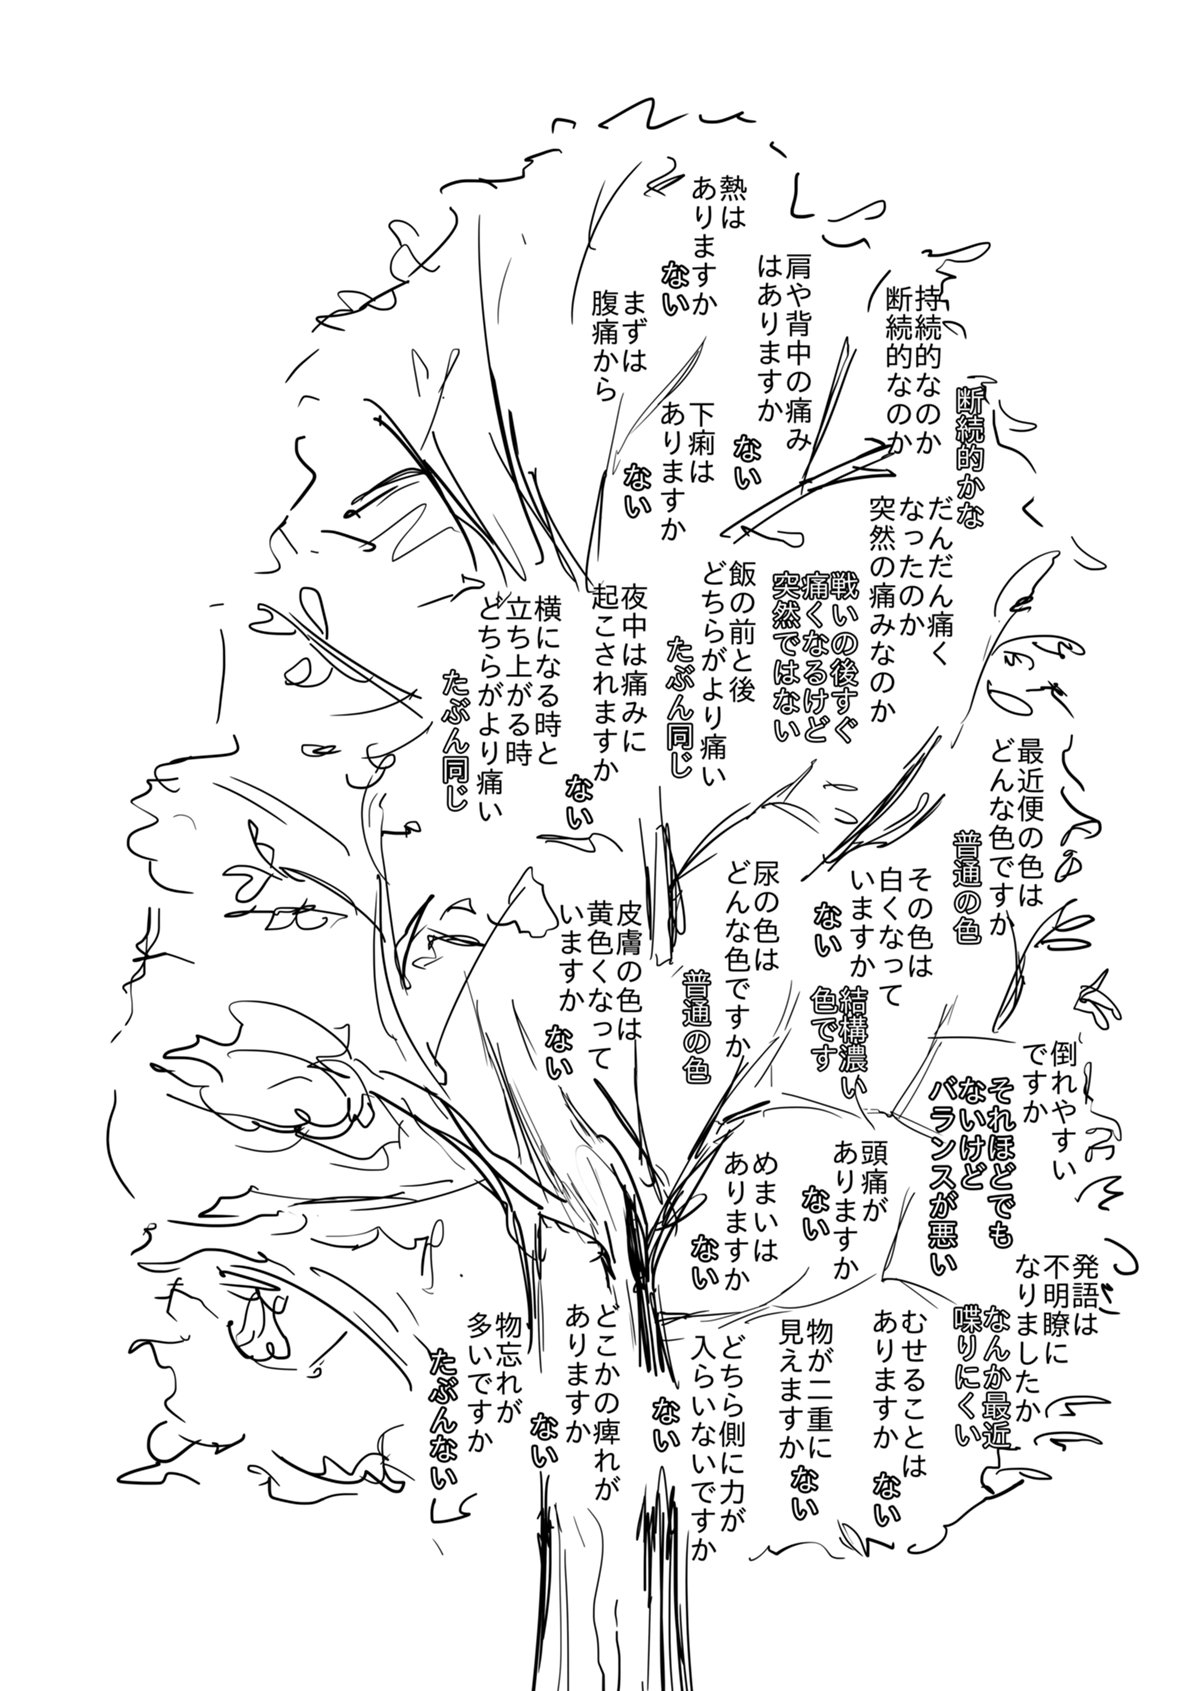 熱は
ありますか
ない
まずは
腹痛から
肩や背中の痛み
はありますか
ない
持続的なのか
断続的なのか
断続的かな
下痢は
ありますか
ない
だんだん痛く
なったのか
突然の痛みなのか
戦いの後すぐ
痛くなるけど
突然ではない
飯の前と後
どちらがより痛い
たぶん同じ
夜中は痛みに
起こされますか
ない
横になる時と
立ち上がる時
どちらがより痛い
たぶん同じ
最近便の色は
どんな色ですか
普通の色
その色は
白くなって
いますか
ない
尿の色は
どんな色ですか
普通の色
結構濃い
色です
皮膚の色は
黄色くなって
いますか
ない
倒れやすい
ですか
それほどでも
ないけど
バランスが悪い
頭痛が
ありますか
ない
めまいは
ありますか
ない
発語は
不明瞭に
なりましたか
なんか最近
喋りにくい
むせることは
ありますか
ない
物が二重に
見えますか
ない
どちら側に力が
入らいないですか
ない
どこかの痺れが
ありますか
ない
物忘れが
多いですか
たぶんない